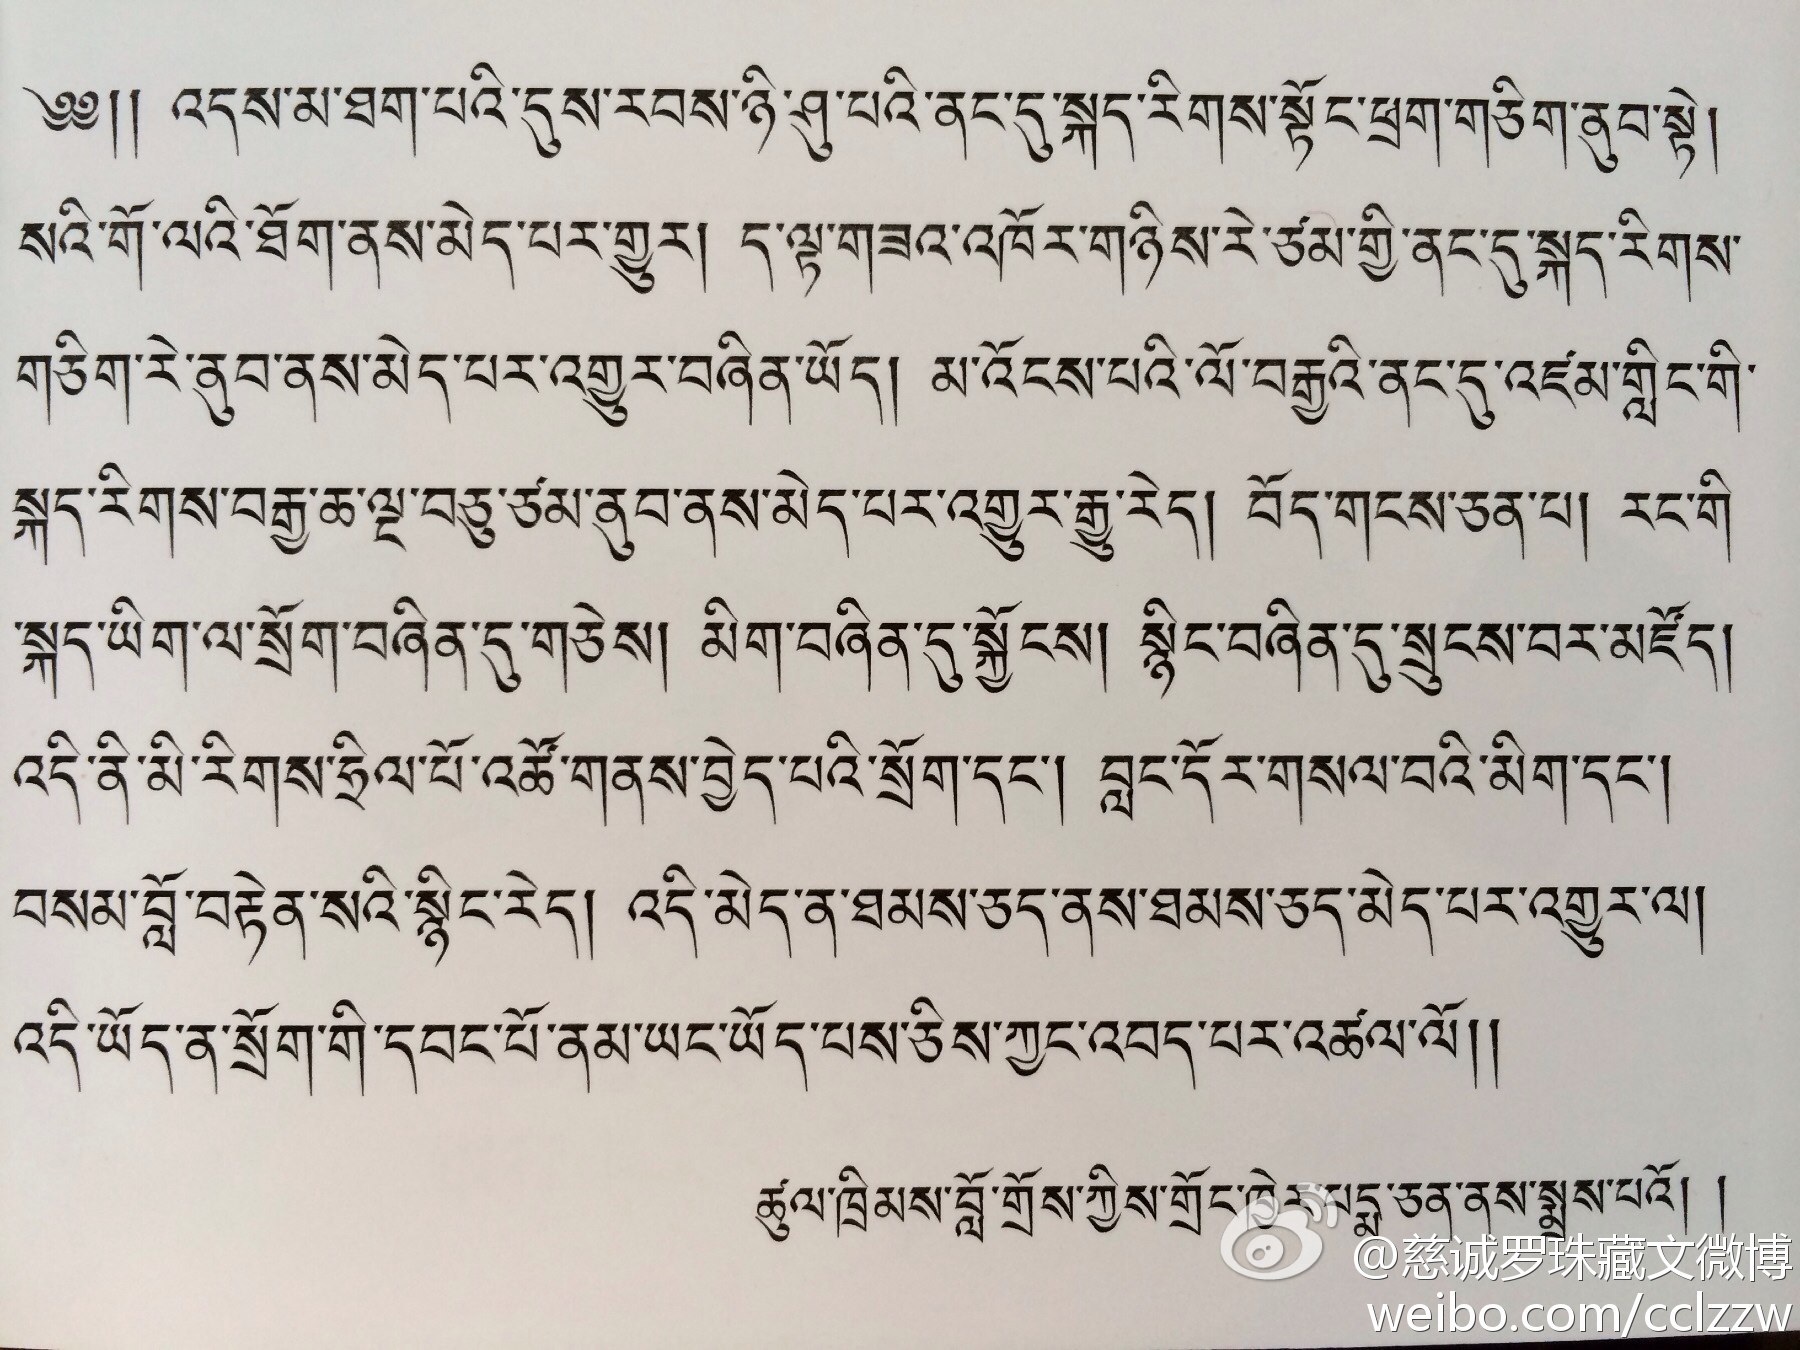 ༄༅།། འདས་མ་ཐག་པའི་དུས་རབས་ཉི་ཤུ་པའི་ནང་དུ་སྐད་རིགས་སྟོང་ཕྲག་གཅིག་ནུབ་སྟེ།
སའི་གོ་ལའི་ཐོག་ནས་མེད་པར་གྱུར། ད་ལྟ་གཟའ་འཁོར་གཉིས་རེ་ཙམ་གྱི་ནང་དུ་སྐད་རིགས་
གཅིག་རེ་ནུབ་ནས་མེད་པར་འགྱུར་བཞིན་ཡོད། མ་འོངས་པའི་ལོ་བརྒྱའི་ནང་དུ་འཛམ་གླིང་གི་
སྐད་རིགས་བརྒྱ་ཆ་ལྔ་བཅུ་ཙམ་ནུབ་ནས་མེད་པར་འགྱུར་རྒྱུ་རེད། བོད་གངས་ཅན་པ། རང་གི
་སྐད་ཡིག་ལ་སྲོག་བཞིན་དུ་གཅེས། མིག་བཞིན་དུ་སྐྱོངས། སྙིང་བཞིན་དུ་སྲུངས་བར་མཛོད།
འདི་ནི་མི་རིགས་ཧྲིལ་པོ་འཚོ་གནས་བྱེད་པའི་སྲོག་དང་། བླང་དོར་གསལ་བའི་མིག་དང་།
བསམ་བློ་བརྟེན་སའི་སྙིང་རེད། འདི་མེད་ན་ཐམས་ཅད་ནས་ཐམས་ཅད་མེད་པར་འགྱུར་ལ།
འདི་ཡོད་ན་སྲོག་གི་དབང་པོ་ནམ་ཡང་ཡོད་པས་ཅིས་ཀྱང་འབད་པར་འཚལ་ལོ།།
ཚུལ་ཁྲིམས་བློ་གྲོས་ཀྱིས་གྲོང་ཁྱེར་པདྨ་ཅན་ནས་སྨྲས་པའོ། །
@慈诚罗珠藏文微博
weibo.com/cclzzw